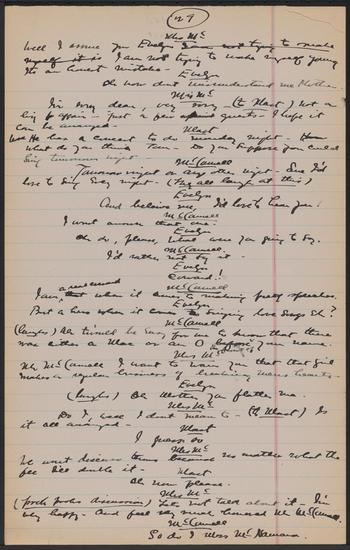 29
Mrs Mc
Well I assure you Evelyn I am not trying to make
myself it is I am not trying to make myself young
Its an honest mistake -
Evelyn
Oh now dont misunderstand me Mother.
Mrs Mc
I'm sorry dear, very sorry (to Mast) not a
big affair - just a few guests - I hope it
can be arranged -
Mast
He has a concert to do Sunday night - How
what do you think Do you suppose you could
Sing tomorrow night -
McCamell
Tomorrow night or any other night - Sure I'd
love to sing every night - (They all laugh at this)
Evelyn
And believe me, I'd love to hear you!
McCamell
I wont answer that one.
Evelyn
Oh do, please, what were you going to say.
McCamell
I'd rather not say it -
Evelyn
Coward!
McCamell
I am, that when it comes to making pretty speeches.
Evelyn
But a hero when it comes to singing love songs Eh?
McCamell
(laughs) be easy for me to know that there
was either a Mac or an O before your name.
Mrs Mc
Mr McCamell I want to warn you that that girl
makes a regular business of breaking mens hearts -
Evelyn
(laughs) Oh Mother you flatter me.
Mrs Mc
Do I, well I dont mean to - (to Mast) Is
it all arranged -
Mast
I guess so
Mrs Mc
We wont discuss terms because no matter what the
fee I'll double it -
Mast
Oh now please.
Mrs Mc
(pooh poohs discussion) Lets not talk about it - I'm
very happy - And feel very much honored Mr McCamell.
McCamell
So do I Miss McNamara